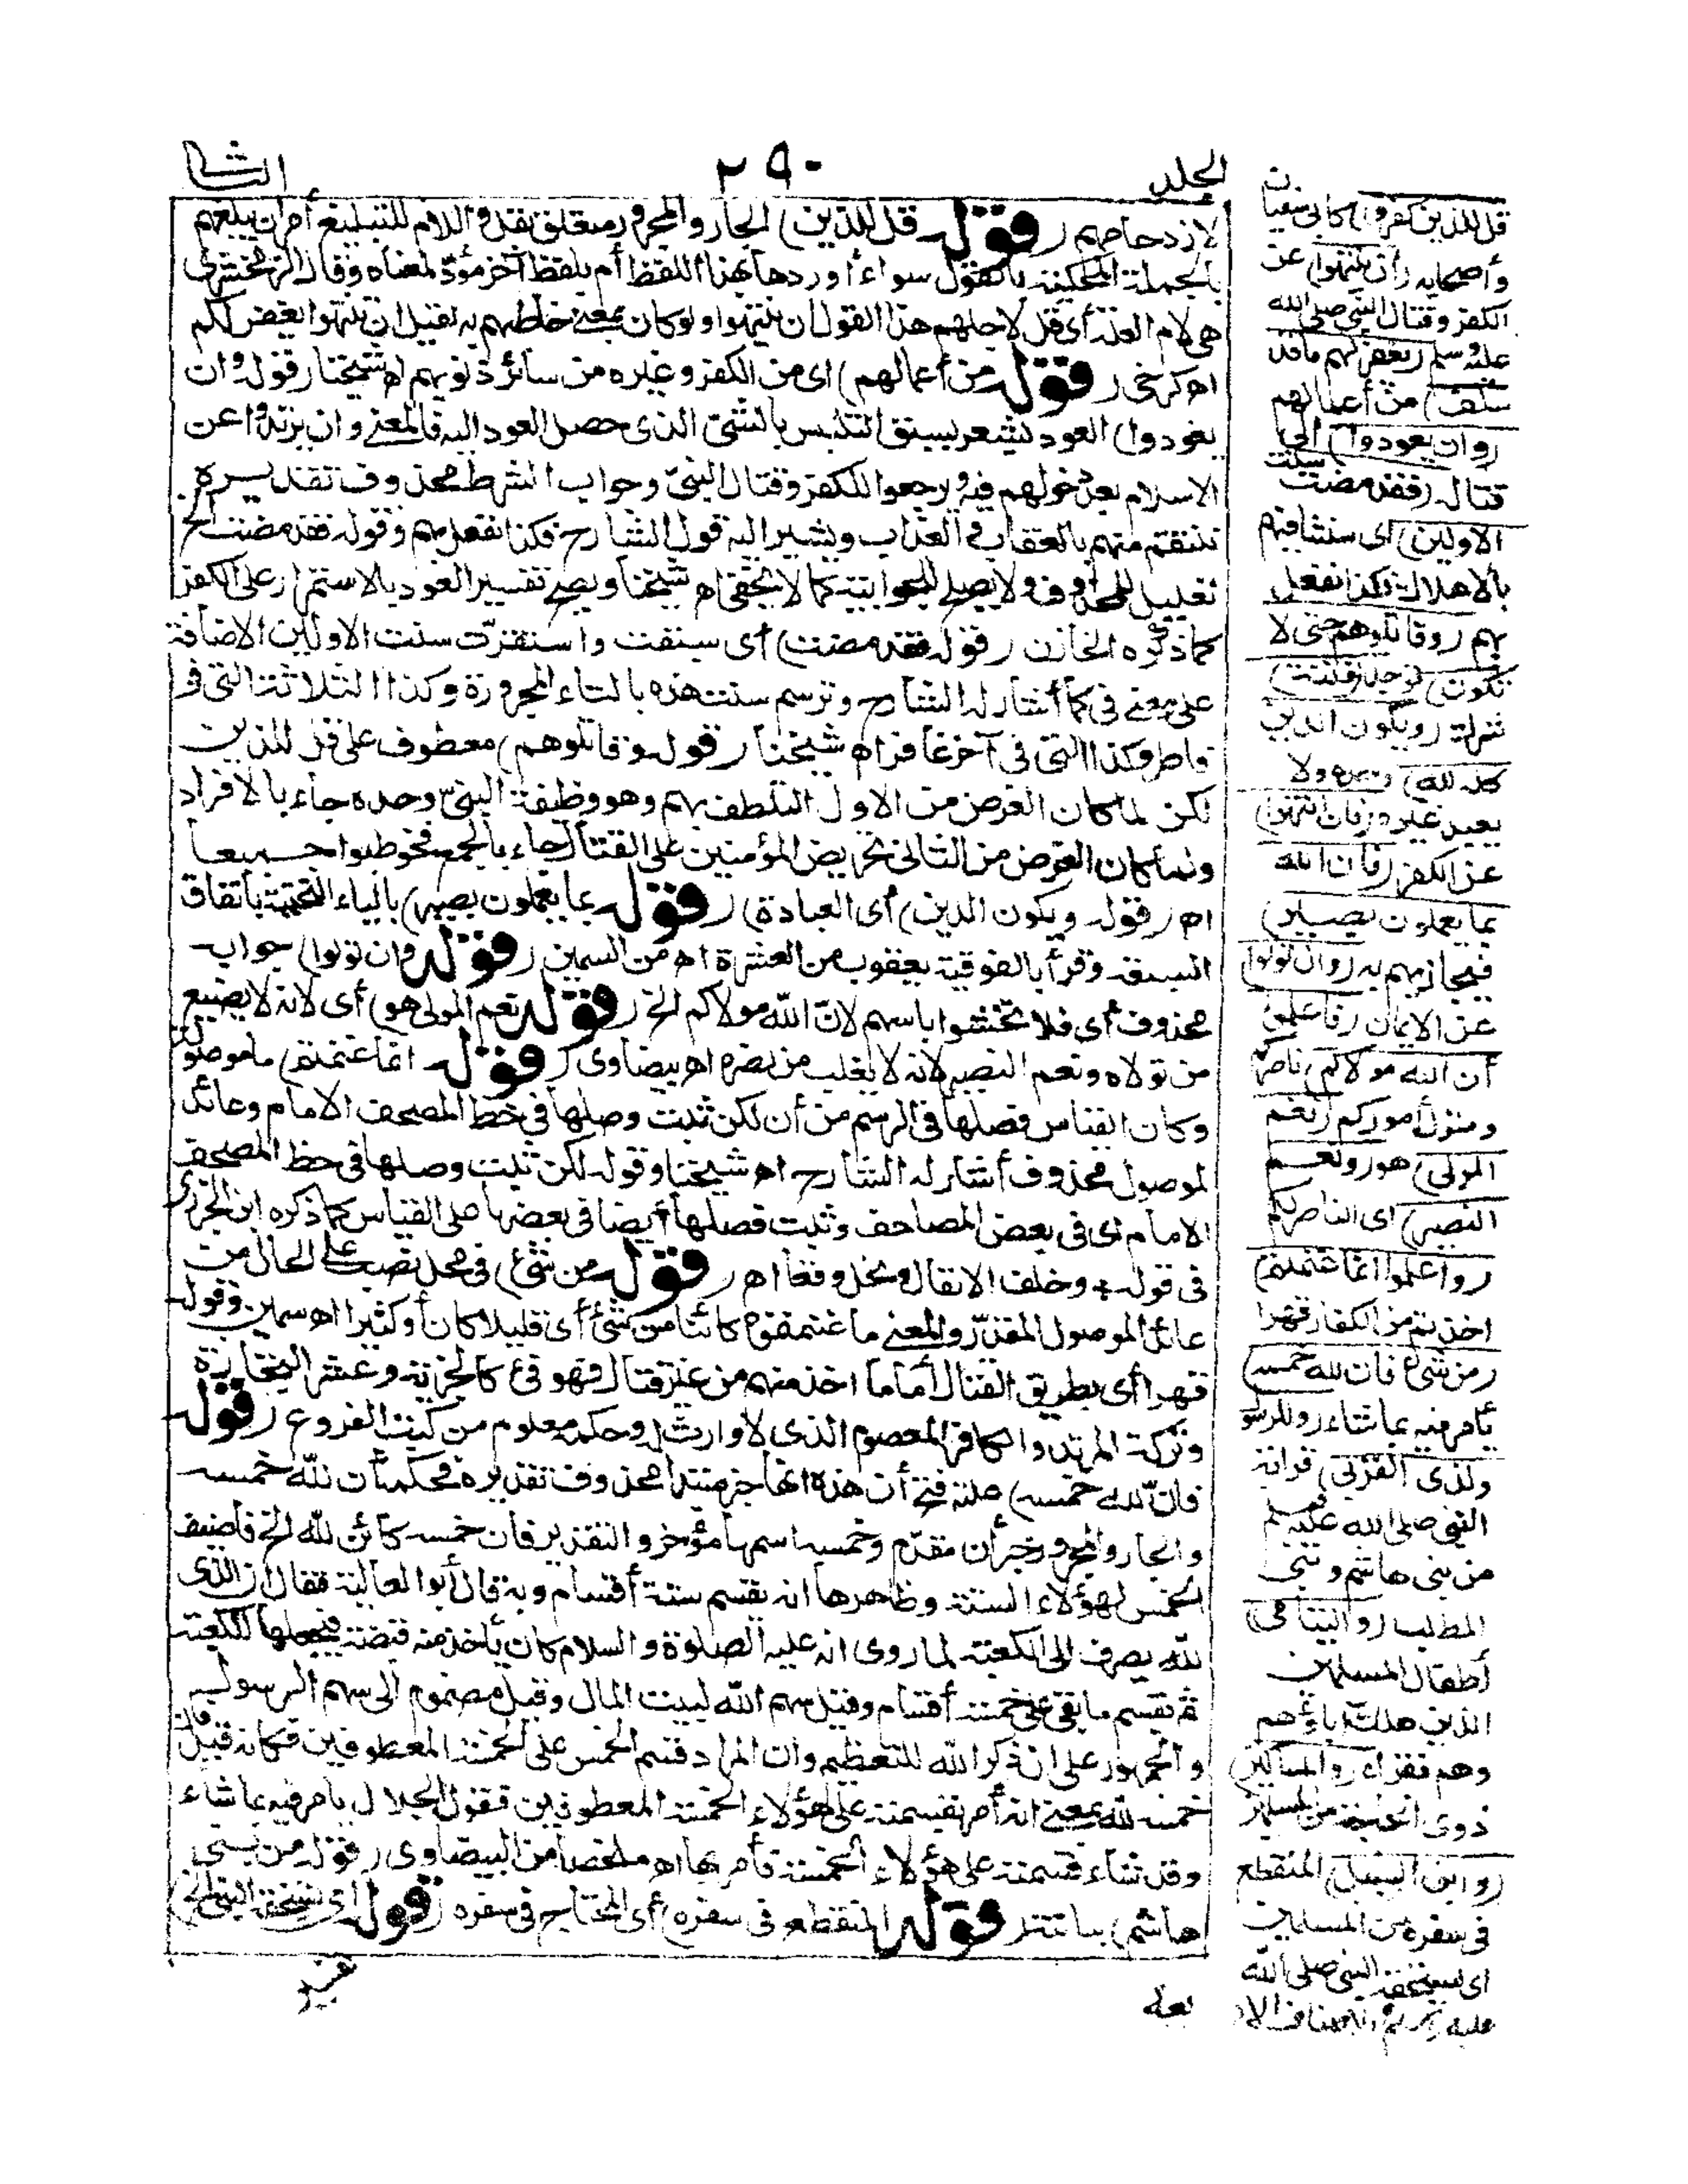 الجلد
٢٩٠
الثا
لازدحامهم (قوله قل للذين) الجار والمجرور متعلق بقل واللام للتبليغ أمر ان يبلغهم
بالجملة المحكية بالقول سواء أوردها بهذا اللفظ أم بلفظ آخر مؤد لمعناه وقال الزمخشرى
هى لام العلة أى قل لاجلهم هذا القول ان ينتهوا ولو كان بمعنى خاطبهم به لقيل ان تنتهوا يغفر لكم
اه كرخى (قوله من أعمالهم) اى من الكفر وغيره من سائر ذنوبهم اه شيخنا (قوله وان
يعودوا) العود يشعر بسبق التلبس بالشئ الذى حصل العود اليه فالمعنى وان يرتدوا عن
الاسلام بعد دخولهم فيه ويرجعوا للكفر وقتال النبىّ وجواب الشرط محذوف تقديره
ننتقم منهم بالعقاب والعذاب ويشير اليه قول الشارح فكذا نفعل بهم وقوله فقد مضت الخ
تعليل للمحذوف ولا يصلح للجوابية كما لا يخفى اه شيخنا ويصح تفسير العود بالاستمرار على الكفر
كما ذكره الخازن (قوله فقد مضت) أى سبقت واستقرّت سنت الاولين الاضافة
على معنى فى كما أشار له الشارح وترسم سنت هذه بالتاء المجرورة وكذا الثلاثة التى فى
فاطر وكذا التى فى آخر غافر اه شيخنا (قوله وقاتلوهم) معطوف على قل للذين
لكن لما كان الغرض من الاول التلطف بهم وهو وظيفة النبىّ وحده جاء بالافراد
ولما كان الغرض من الثانى تحريض المؤمنين على القتال جاء بالجمع فخوطبوا جميعا
اه (قوله ويكون الدين) أى العبادة) (قوله بما يعملون بصير) بالياء التحتية باتفاق
السبعة وقرأ بالفوقية يعقوب من العشرة اه من السمين (قوله وان تولوا) جواب
محذوف أى فلا تخشوا باسهم لانّ الله مولاكم الخ (قوله نعم المولى هو) أى لانه لا يضيع
من تولاه ونعم النصير لانه لا يغلب من نصره اه بيضاوى (قوله انما غنمتم) ما موصولة
وكان القياس فصلها فى الرسم من أن لكن ثبت وصلها فى خط المصحف الامام وعائد
لموصول محذوف أشار له الشارح اه شيخنا وقوله لكن ثبت وصلها فى خط المصحف
الامام اى فى بعض المصاحف وثبت فصلها أيضا فى بعضها على القياس كما ذكره ابن الجزرى
فى قوله * وخلف الانفال ونحل وقعا اه (قوله من شئ) فى محل نصب على الحال من
عائد الموصول المقدّر والمعنى ما غنمتموه كائنا من شئ أى قليلا كان أو كثيرا اه سمين وقوله
قهرا أى بطريق القتال أما ما اخذ منهم من غير قتال فهو فئ كالجزية وعشر التجارة
وتركة المرتد والكافر المعصوم الذى لا وارث له وحكمه معلوم من كتب الفروع (قوله
فان لله خمسه) علة فتح أن هذه انها خبر مبتدا محذوف تقديره فحكمه أن لله خمسه
والجار والمجرور خبر أن مقدّم وخمسه اسمها مؤخر والتقدير فان خمسه كائن لله الخ فاضيف
الخمس لهؤلاء الستة وظاهرها انه يقسم ستة أقسام وبه قال أبو العالية فقال ان الذى
لله يصرف الى الكعبة لما روى انه عليه الصلوة والسلام كان يأخذ منه قبضة فيجعلها للكعبة
ثم يقسم ما بقى على خمسة أقسام وقيل سهم الله لبيت المال وقيل مضموم الى سهم الرسول
والجمهور على ان ذكر الله للتعظيم وان المراد قسم الخمس على الخمسة المعطوفين فكانه قيل فان
خمسه لله بمعنى انه أمر بقسمته على هؤلاء الخمسة المعطوفين فقول الجلال يامر فيه بما شاء
وقد شاء قسمته على هؤلاء الخمسة فأمر بها اه ملخصا من البيضاوى (قوله من بنى
هاشم) بيا تتر (قوله المنقطع فى سفره) أى المحتاج فى سفره (قوله اى يستحقه النبىّ الخ)
قل للذين كفروا) كابى سفيان
وأصحابه (أن ينتهوا) عن
الكفر وقتال النبى صلى الله
عليه وسلم (يغفر لهم ما قد
سلف) من أعمالهم
(وان يعودوا) الى
قتاله (فقد مضت سنت
الاولين) اى سنتنا فيهم
بالاهلاك فكذا نفعل
بهم (وقاتلوهم حتى لا
تكون) توجد (فتنة)
شرك (ويكون الدين
كله لله) وحده ولا
يعبد غيره (فان انتهوا)
عن الكفر (فان الله
بما يعملون بصير)
فيجازيهم به (وان تولوا)
عن الايمان (فاعلموا
أن الله مولاكم) ناصركم
ومتولى أموركم (نعم
المولى) هو (ونعم
النصير) اى الناصر لكم
(واعلموا انما غنمتم)
اخذتم من الكفار قهرا
(من شئ فان لله خمسه)
يأمر فيه بما شاء (وللرسول
ولذى القربى) قرابة
النبى صلى الله عليه وسلم
من بنى هاشم وبنى
المطلب (واليتامى)
أطفال المسلمين
الذين هلك آباؤهم
وهم فقراء (والمساكين)
ذوى الحاجة من المسلمين
(وابن السبيل) المنقطع
فى سفره من المسلمين
اى يستحقه النبى صلى الله
عليه وسلم والاصناف الار
بعة